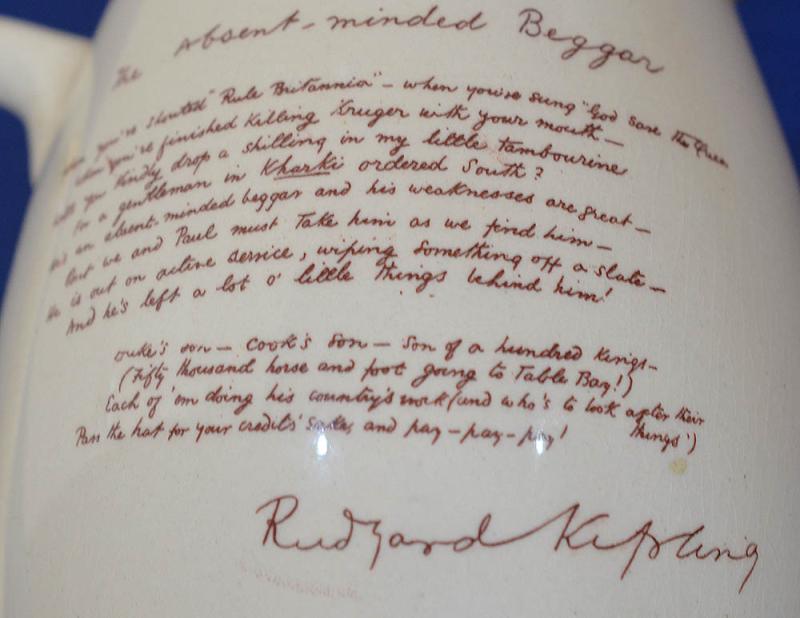 The Absent-minded Beggar
When you've shouted "Rule Britannia" – when you've sung "God Save the Queen
When you've finished Killing Kruger with your mouth –
Will you Kindly drop a shilling in my little tambourine
For a gentleman in Kharki ordered South?
He's an absent-minded beggar and his weaknesses are great –
But we and Paul must Take him as we find him –
He is out on active service, wiping something off a slate –
And he's left a lot o' little things behind him!
Duke's son – Cook's son – Son of a hundred Kings –
(Fifty thousand horse and foot going to Table Bay!)
Each of 'em doing his country's work (and who's to look after their
things')
Pass the hat for your credits' sake, and pay – pay – pay!
Rudyard Kipling